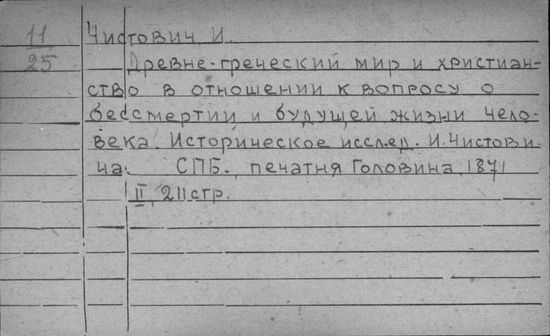 11
25
Чистович, И.
Древне-греческий мир и христиан-
ство в отношении к вопросу о
бессмертии и будущей жизни чело-
века. Историческое исслед. И. Чистови-
ча. СПБ., печатня Головина, 1871
II, 211 стр.